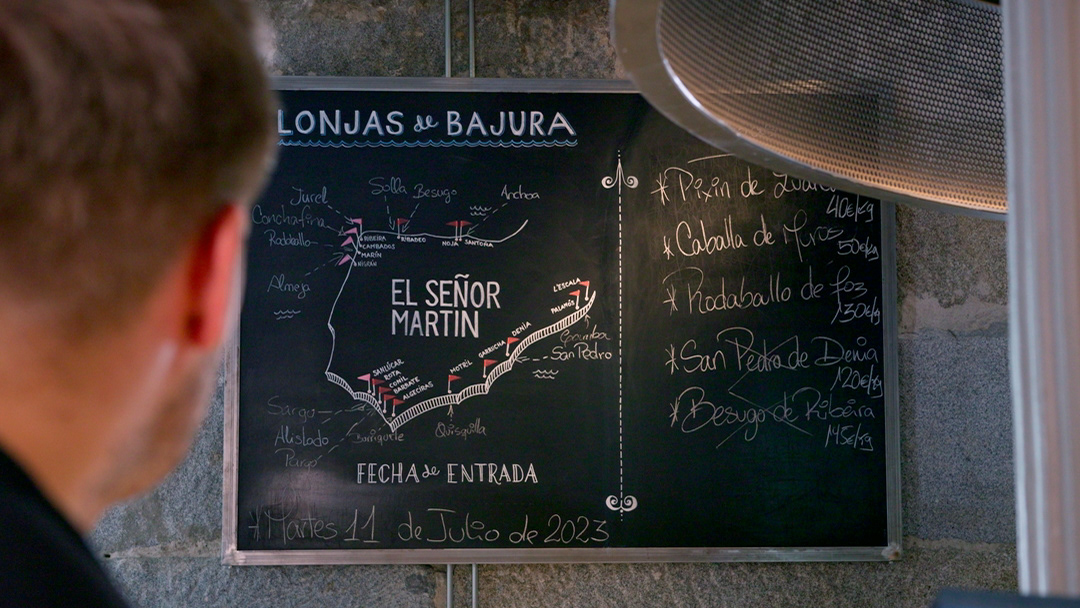 LONJAS de BAJURA
Jurel
Solla
Besugo
Anchoa
Conchafina
Rodaballo
RIBEIRA
CAMBADOS
MARÍN
NIGRÁN
RIBADEO
NOJA
SANTOÑA
Almeja
EL SEÑOR
MARTIN
L'ESCALA
PALAMÓS
DENIA
GARRUCHA
MOTRIL
San Pedro
SANLÚCAR
ROTA
CONIL
BARBATE
ALGECIRAS
Sargo
Alistado
Pargo
Quisquilla
FECHA de ENTRADA
*Martes 11 de Julio de 2023
*Pixín de
40€/kg
*Caballa de Muros
50€/kg
*Rodaballo de foz
130€/kg
*San Pedro de Denia
120€/kg
*Besugo de Ribeira
145€/kg